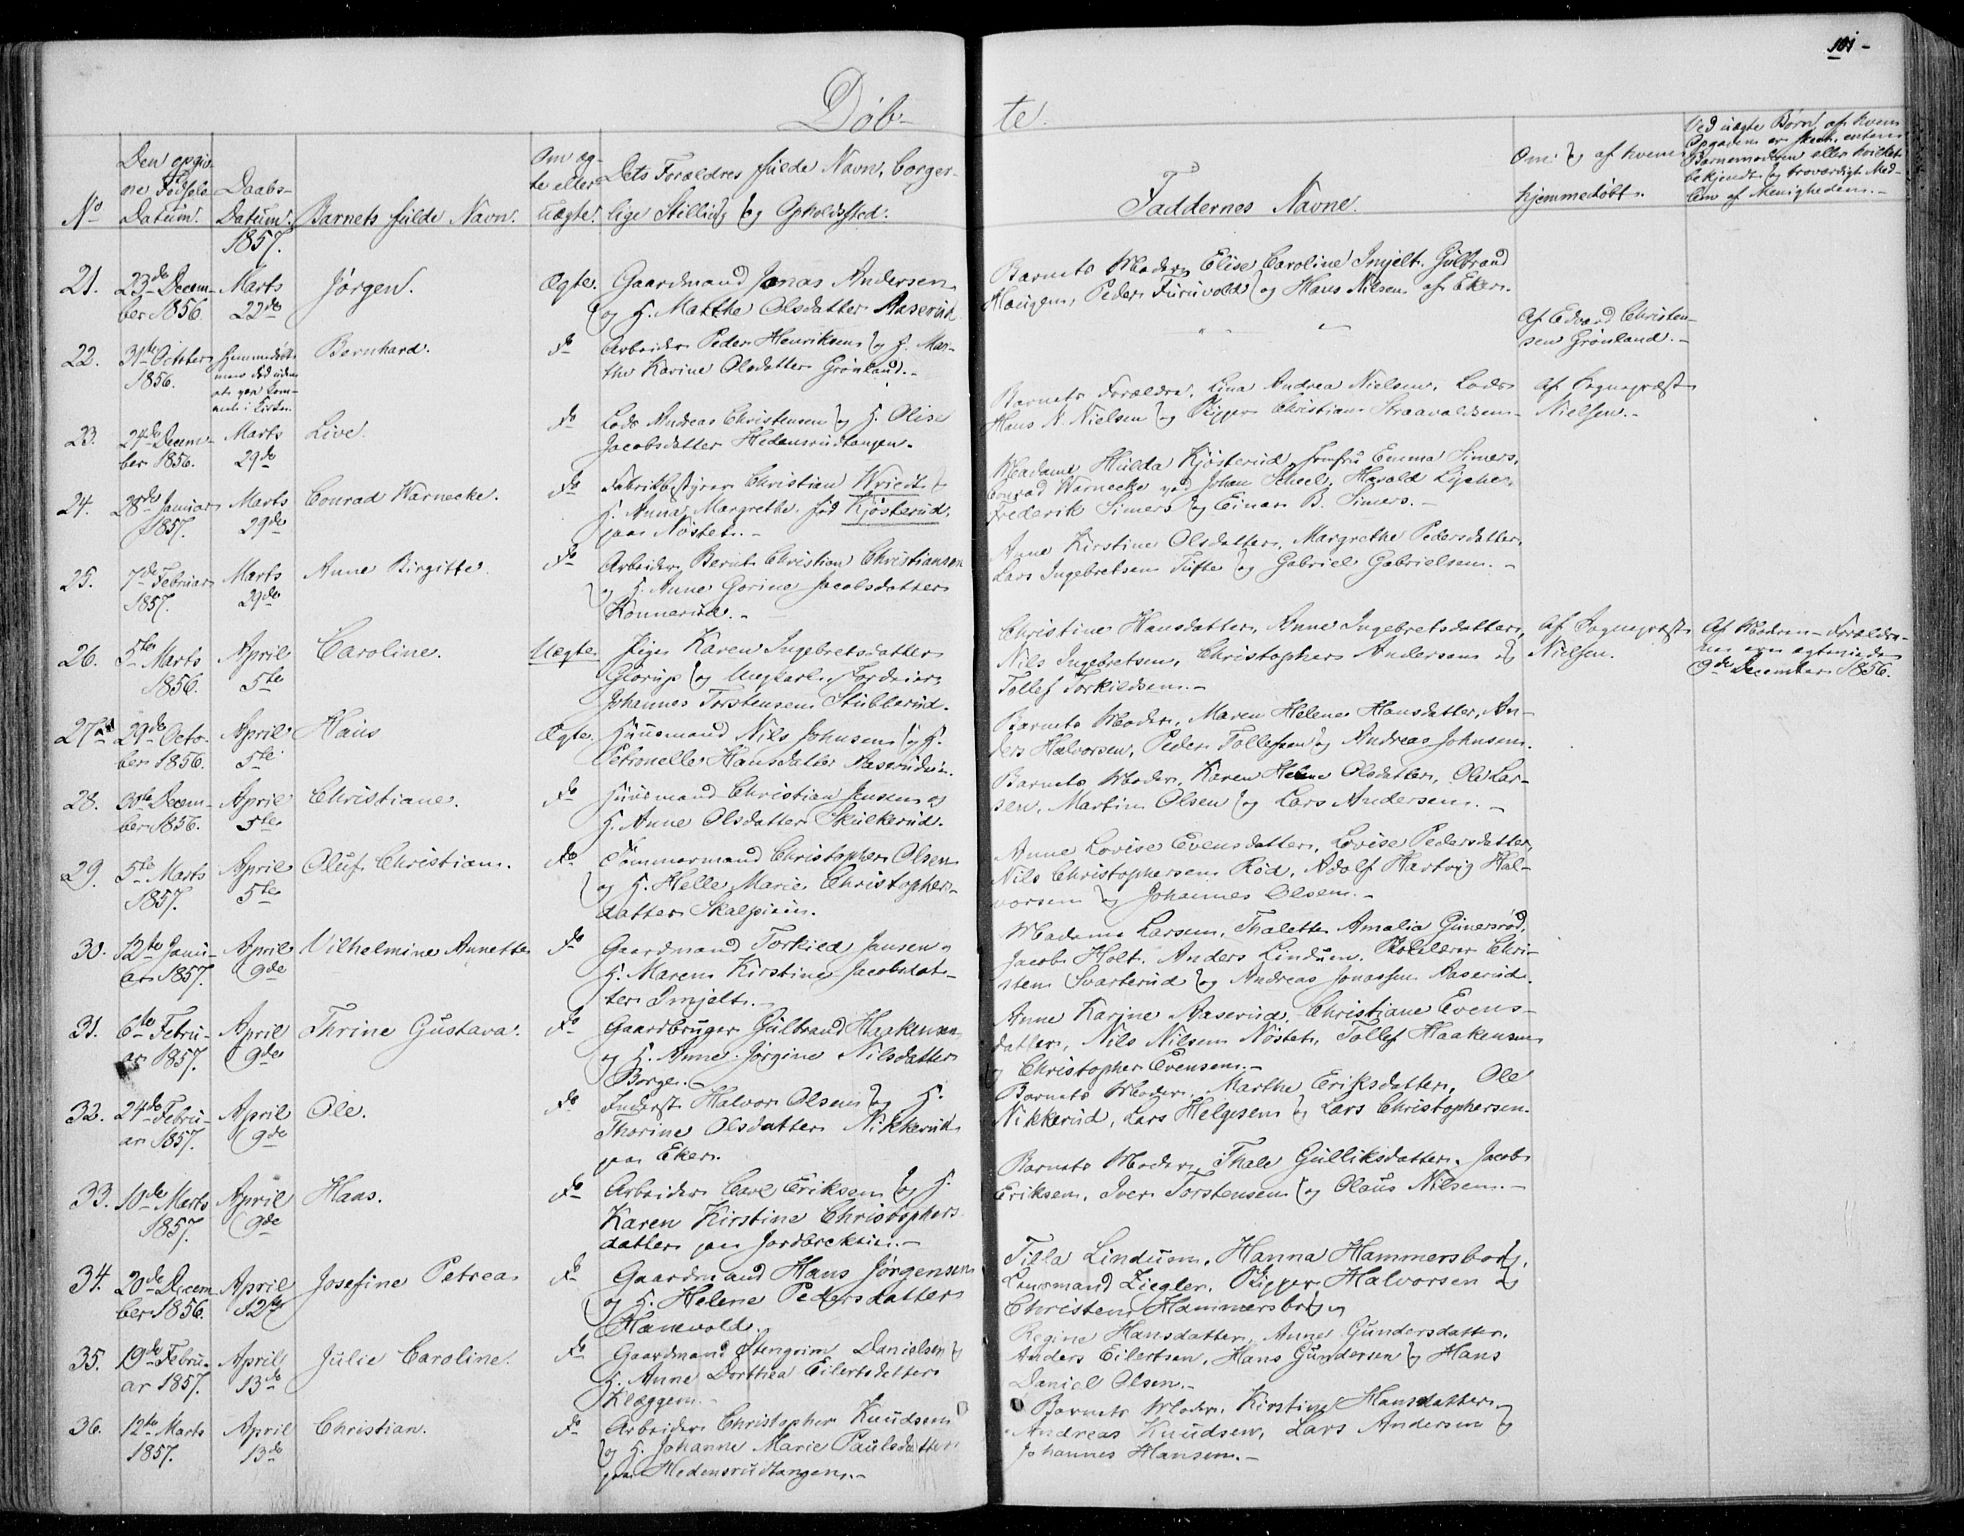 101 -
Döb-
te.
No
Den opgiv-
ne Födsels
Datum.
Daabs-
Datum.
1857.
Barnets fulde Navn.
Om æg-
te eller
uægte.
Dets Forældres fulde Navn, borger-
lige Stilling og Opholdssted.
Faddernes Navne.
Om og af hvem
hjemmedöbt.
Ved uægte Börn, af hvem
Opgaven er skeet, enten
Barnemoderen eller hvilket
bekjendt og troværdigt Med-
lem af Menigheden.-
21.
23de Decem-
ber 1856.
Marts
22de
Jörgen.
Ægte.
Gaardmand Jonas Andersen
og H. Marthe Olsdatter Aaserud
Barnets Moder, Elise Caroline Smjelt, Gulbrand
Haugen, Peder Furuvold og Hans Nilsen af Eker.
22.
31te October
1856.
Hjemmedöbt
men död uden
at være kom-
met i Kirken.
Bernhard.
do
Arbeider Peder Henriksen og H. Mar-
the Karine Olsdatter Grönland.-
Af Edvard Christen-
sen Grönland.-
23.
24de Decem-
ber 1856.
Marts
29de
Live.
do
Lods Andreas Christensen og H. Olise
Jacobsdatter Hedensrudtangen.
Barnets Forældre, Lina Andrea Nielsen, Lods
Hans N. Nielsen og Skipper Christian Straavoldsen
af Sognepræst
Nielsen.-
24.
28de Januar
1857.
Marts
29de
Conrad Warnecke.
do
Fabrikbestyrer Christian Wriedt og
H. Anna Margrethe föd Kjösterud,
paa Nöstet.-
Madame Hulda Kjösterud, Jomfru Emma Simers,
Conrad Warnecke ved Johan Scheel, Harald Lyche,
Frederik Simers og Einar B. Simers.-
25.
7de Februar
1857.
Marts
29de
Anne Birgitte.
do
Arbeider Bernt Christian Christiansen
og H. Anne Gorine Jacobsdatter
Konnerud.-
Anne Kirstine Olsdatter, Margrethe Pedersdatter,
Lars Ingebretsen Tufte og Gabriel Gabrielsen.-
26.
5te Marts
1856.
April
5te
Caroline.
Uægte.
Pige Karen Ingebretsdatter
Glorup og Ungkarl, Fordeier
Johannes Torstensen Stublerud.
Christine Hansdatter, Anne Ingebretsdatter,
Nils Ingebretsen, Christopher Andersen og
Tollef Torkildsen.-
af Sognepræst
Nielsen.
Af Moderen - Forældre-
ne ere ægteviede
9de December 1856.
27.
29de Octo-
ber 1856.
April
5te
Hans
Ægte.
Huusmand Nils Johnsen og H.
Petronelle Hansdatter Aaserudeie.
Barnets Moder, Maren Helene Hansdatter, An-
ders Halvorsen, Peder Tollefsen og Andreas Johnsen.
28.
30te Decem-
ber 1856.
April
5te
Christiane.
do
Huusmand Christian Jensen og
H. Anne Olsdatter Skulkerud.
Barnets Moder, Karen Helene Olsdatter, Ole Lar-
sen, Martin Olsen og Lars Andersen.-
29.
5te Marts
1857.
April
5te
Oluf Christian.
do
Tömmermand Christopher Olsen
og H. Helle Marie Christophers-
datter Skalpseie.
Anne Lovise Evensdatter, Lovise Pedersdatter,
Nils Christophersen Röd, Adolf Hartvig Hal-
vorsen og Johannes Olsen.-
30.
12te Janu-
ar 1857.
April
9de
Vilhelmine Annette
do
Gaardmand Torkild Jansen og
H. Maren Kirstine Jacobsdat-
ter Smjelt.-
Madame Larsen, Thalette Amalia Gunersröd,
Jacob Holt, Anders Lindum, Skolelærer Chri-
sten Svarterud og Andreas Jonassen Aaserud.
31.
6te Febru-
ar 1857.
April
9de
Thrine Gustava.
do
Gaardbruger Gulbrand Haakensen
og H. Anne Jörgine Nilsdatter
Borge.-
Anne Karine Aaserud, Christiane Evens-
datter, Nils Nilsen Nöstet, Tollef Haakensen
og Christopher Evensen.-
32.
24de Febru-
ar 1857.
April
9de
Ole.
do
Inderst Halvor Olsen og H.
Thorine Olsdatter Nikkerud
paa Eker.
Barnets Moder, Marthe Eriksdatter, Ole
Nikkerud, Lars Helgesen og Lars Christophersen.
33.
10de Marts
1857.
April
9de
Hans.
do
Arbeider Carl Eriksen og H.
Karen Kirstine Christophers-
datter paa Jordbrækken.-
Barnets Moder, Thale Gulliksdatter, Jacob
Eriksen, Iver Torstensen og Olaus Nilsen.-
34.
20de Decem-
ber 1856.
April
12te
Josefine Petrea
do
Gaardmand Hans Jörgensen
og H. Helene Pedersdatter
Hanevold.
Tilla Lindum, Hanna Hammersborg,
Lensmand Ziegler, Skipper Halvorsen og
Christen Hammersborg
35.
19de Febru-
ar 1857.
April
13de
Julie Caroline.
do
Gaardmand Stengrim Danielsen og
H. Anne Dorthea Eilertsdatter
Klæggen.-
Regine Hansdatter, Anne Gundersdatter,
Anders Eilertsen, Hans Gundersen og Hans
Daniel Olsen.-
36.
12te Marts
1857.
April
13de
Christian.
do
Arbeider Christopher Knudsen
og H. Johanne Marie Paulsdatter
paa Hedensrudtangen.-
Barnets Moder, Kirstine Hansdatter,
Andreas Knudsen, Lars Andersen og
Johannes Hansen.-